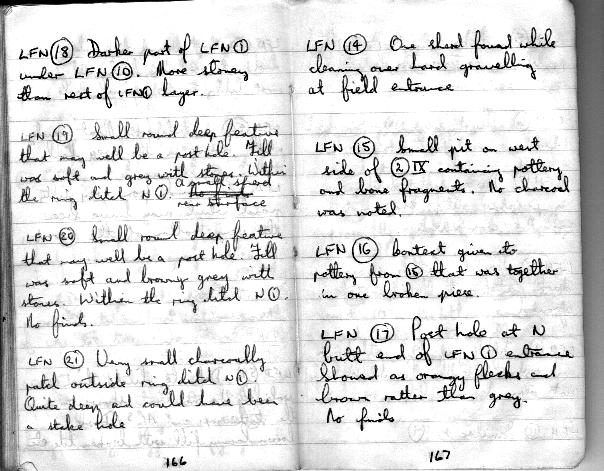 LFN (18) Darker part of LFN (1)
under LFN (10). More stoney
than rest of LFN (1) layer.
LFN (19) Small round deep feature
that may well be a post hole. Fill
was soft and grey with stones. Within
the ring ditch N (1) A small sherd
near surface
LFN (20) Small round deep feature
that may well be a post hole. Fill
was soft and browny grey with
stones. Within the ring ditch N (1).
No finds.
LFN (21) Very small charcoally
patch outside ring ditch N (1).
Quite deep and could have been
a stake hole
166
LFN (14) One sherd found while
cleaning over hard gravelling
at field entrance
LFN (15) Small pit on west
side of (2) IX containing pottery
and bone fragments. No charcoal
was noted.
LFN (16) Context given to
pottery from (15) that was together
in one broken piece.
LFN (17) Post hole at N
butt end of LFN (1) entrance
Showed as orangy flecks and
brown rather than grey.
No finds
167